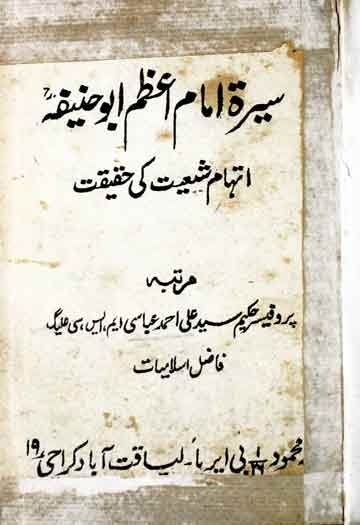 سیرۃ امام اعظم ابو حنیفہؒ
اتہام شیعیت کی حقیقت
مرتبہ
پروفیسر حکیم سید علی احمد عباسی ایم، ایس، سی علیگ
فاضل اسلامیات
محمود ۱/۲۶ بی ایریا ۔ لیاقت آباد کراچی ۱۹